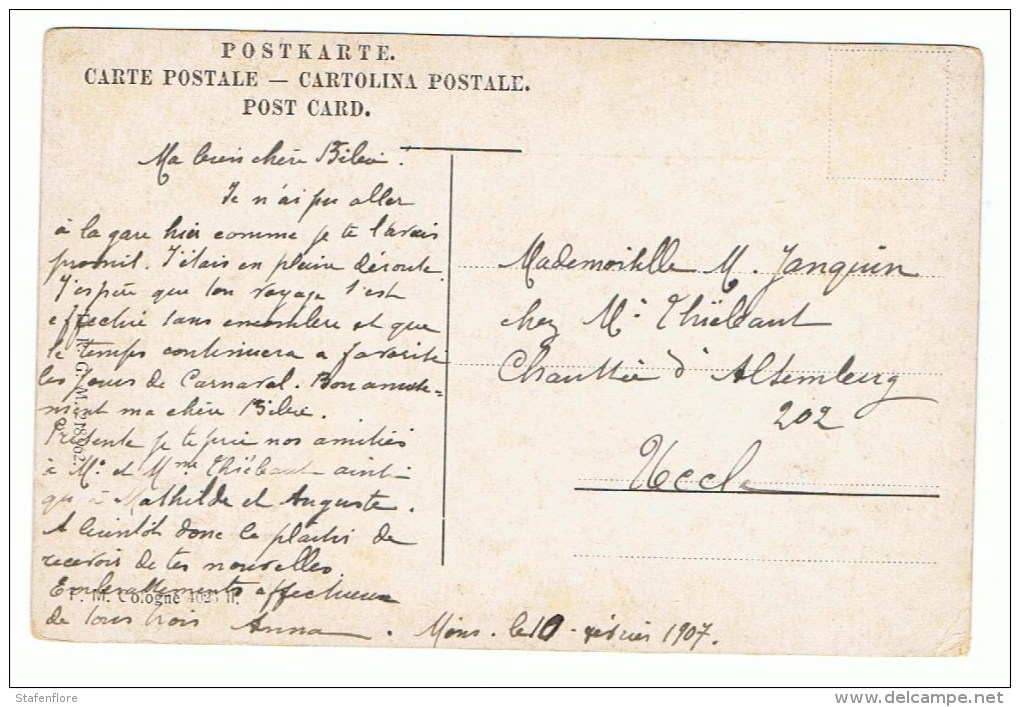 POSTKARTE.
CARTE POSTALE — CARTOLINA POSTALE.
POST CARD.
Ma bien chère Bibie!
Je n'ai pu aller
à la gare hier comme je te l'avais
promis. J'étais en pleine déroute
J'espère que ton voyage s'est
effectué sans encombre et que
le temps continuera a favorisé
les Jours de Carnaval. Bon amuse=
ment ma chère Bibie.
Présente je te prie nos amitiés
à Mr. et Mme Thiébaut ainsi
qu'à Mathilde et Auguste.
A bientôt donc le plaisir de
recevoir de tes nouvelles.
Embrassements affectueux
de tous trois Anna. Mons. le 10 février 1907.
Mademoiselle M. Janquin
chez Mr. Thiébaut
Chaussée d'Alsemberg
202
Uccle
P. M. Cologne 4023 II.
Stafenflore
www.delcampe.net